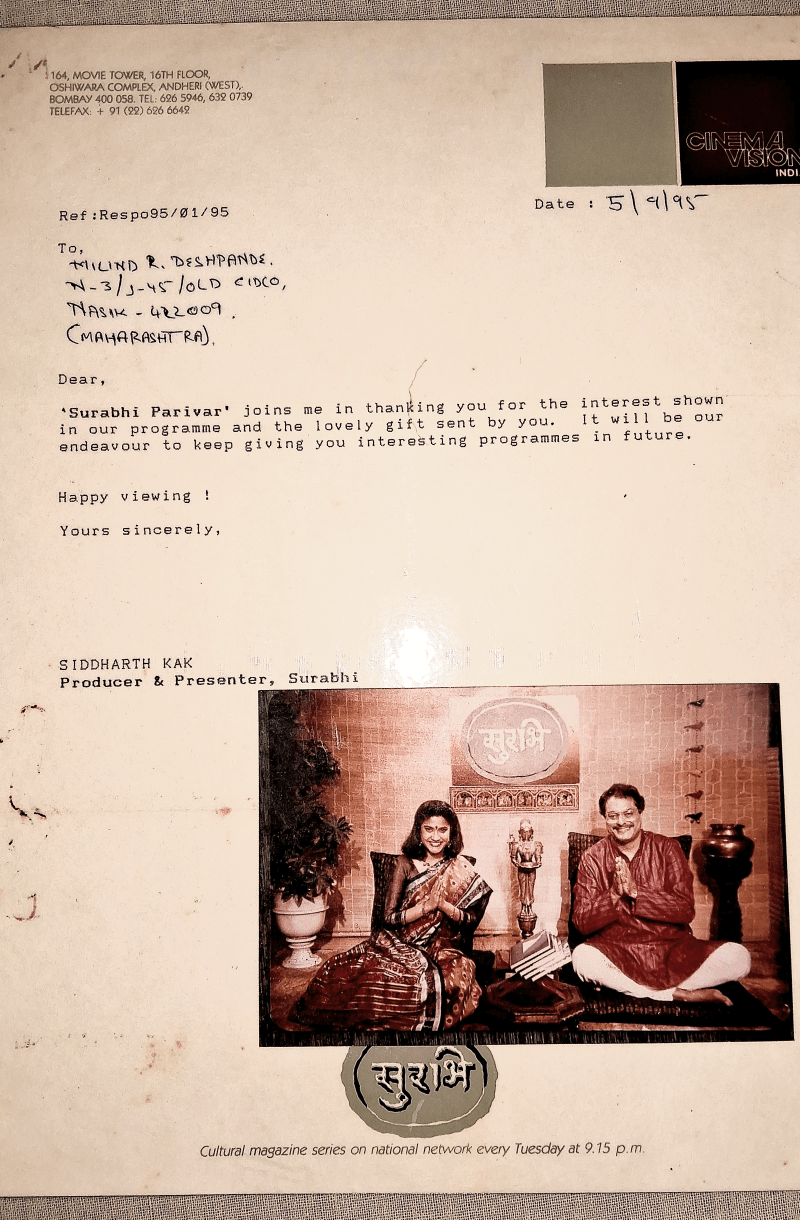 164, MOVIE TOWER, 16TH FLOOR,
OSHIWARA COMPLEX, ANDHERI (WEST),
BOMBAY 400 058. TEL: 626 5946, 632 0739
TELEFAX: + 91 (22) 626 6642
CINEMA
VISION
INDI
Ref:Respo95/01/95
Date : 5/9/95
To,
MILIND R. DESHPANDE.
N-3/J-45/OLD CIDCO,
NASIK - 422009.
(MAHARASHTRA).
Dear,
'Surabhi Parivar' joins me in thanking you for the interest shown
in our programme and the lovely gift sent by you. It will be our
endeavour to keep giving you interesting programmes in future.
Happy viewing !
Yours sincerely,
SIDDHARTH KAK
Producer & Presenter, Surabhi
सुरभि
सुरभि
Cultural magazine series on national network every Tuesday at 9.15 p.m.